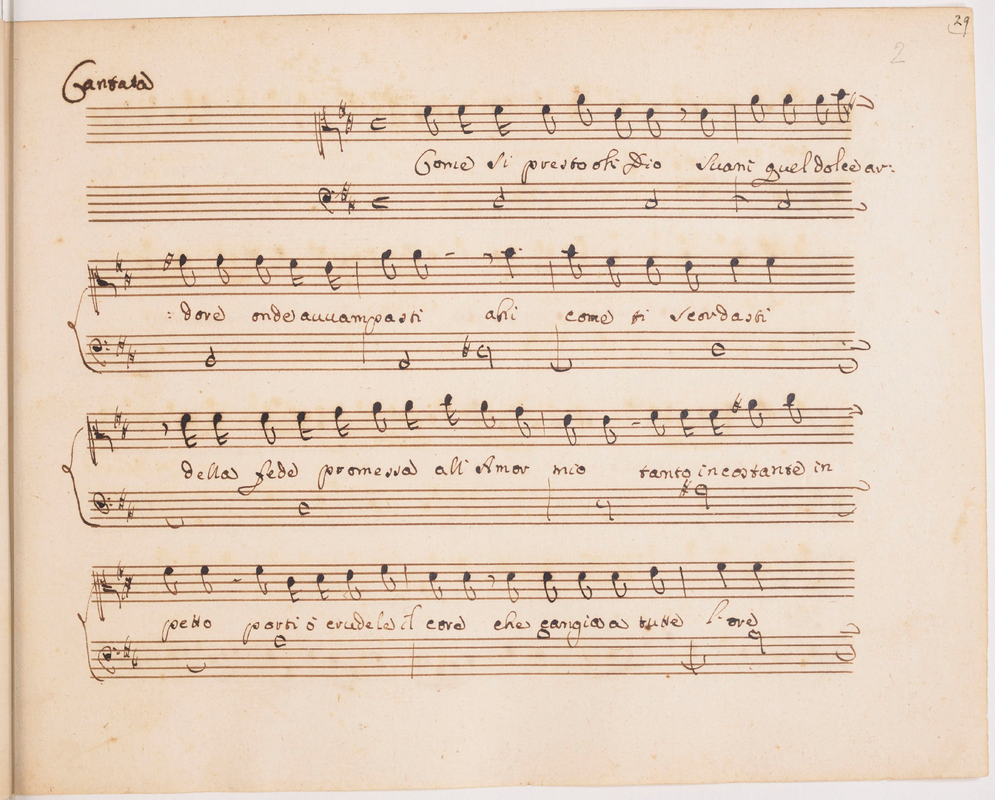 29
2
Cantata
Come si presto ohi Dio Suani quel dolce ar:
: dore onde auuampasti ahi come ti scordasti
della fede promessa all' Amor mio tanto incostante in
petto porti ò crudele il core che cangia a tutte l'ore